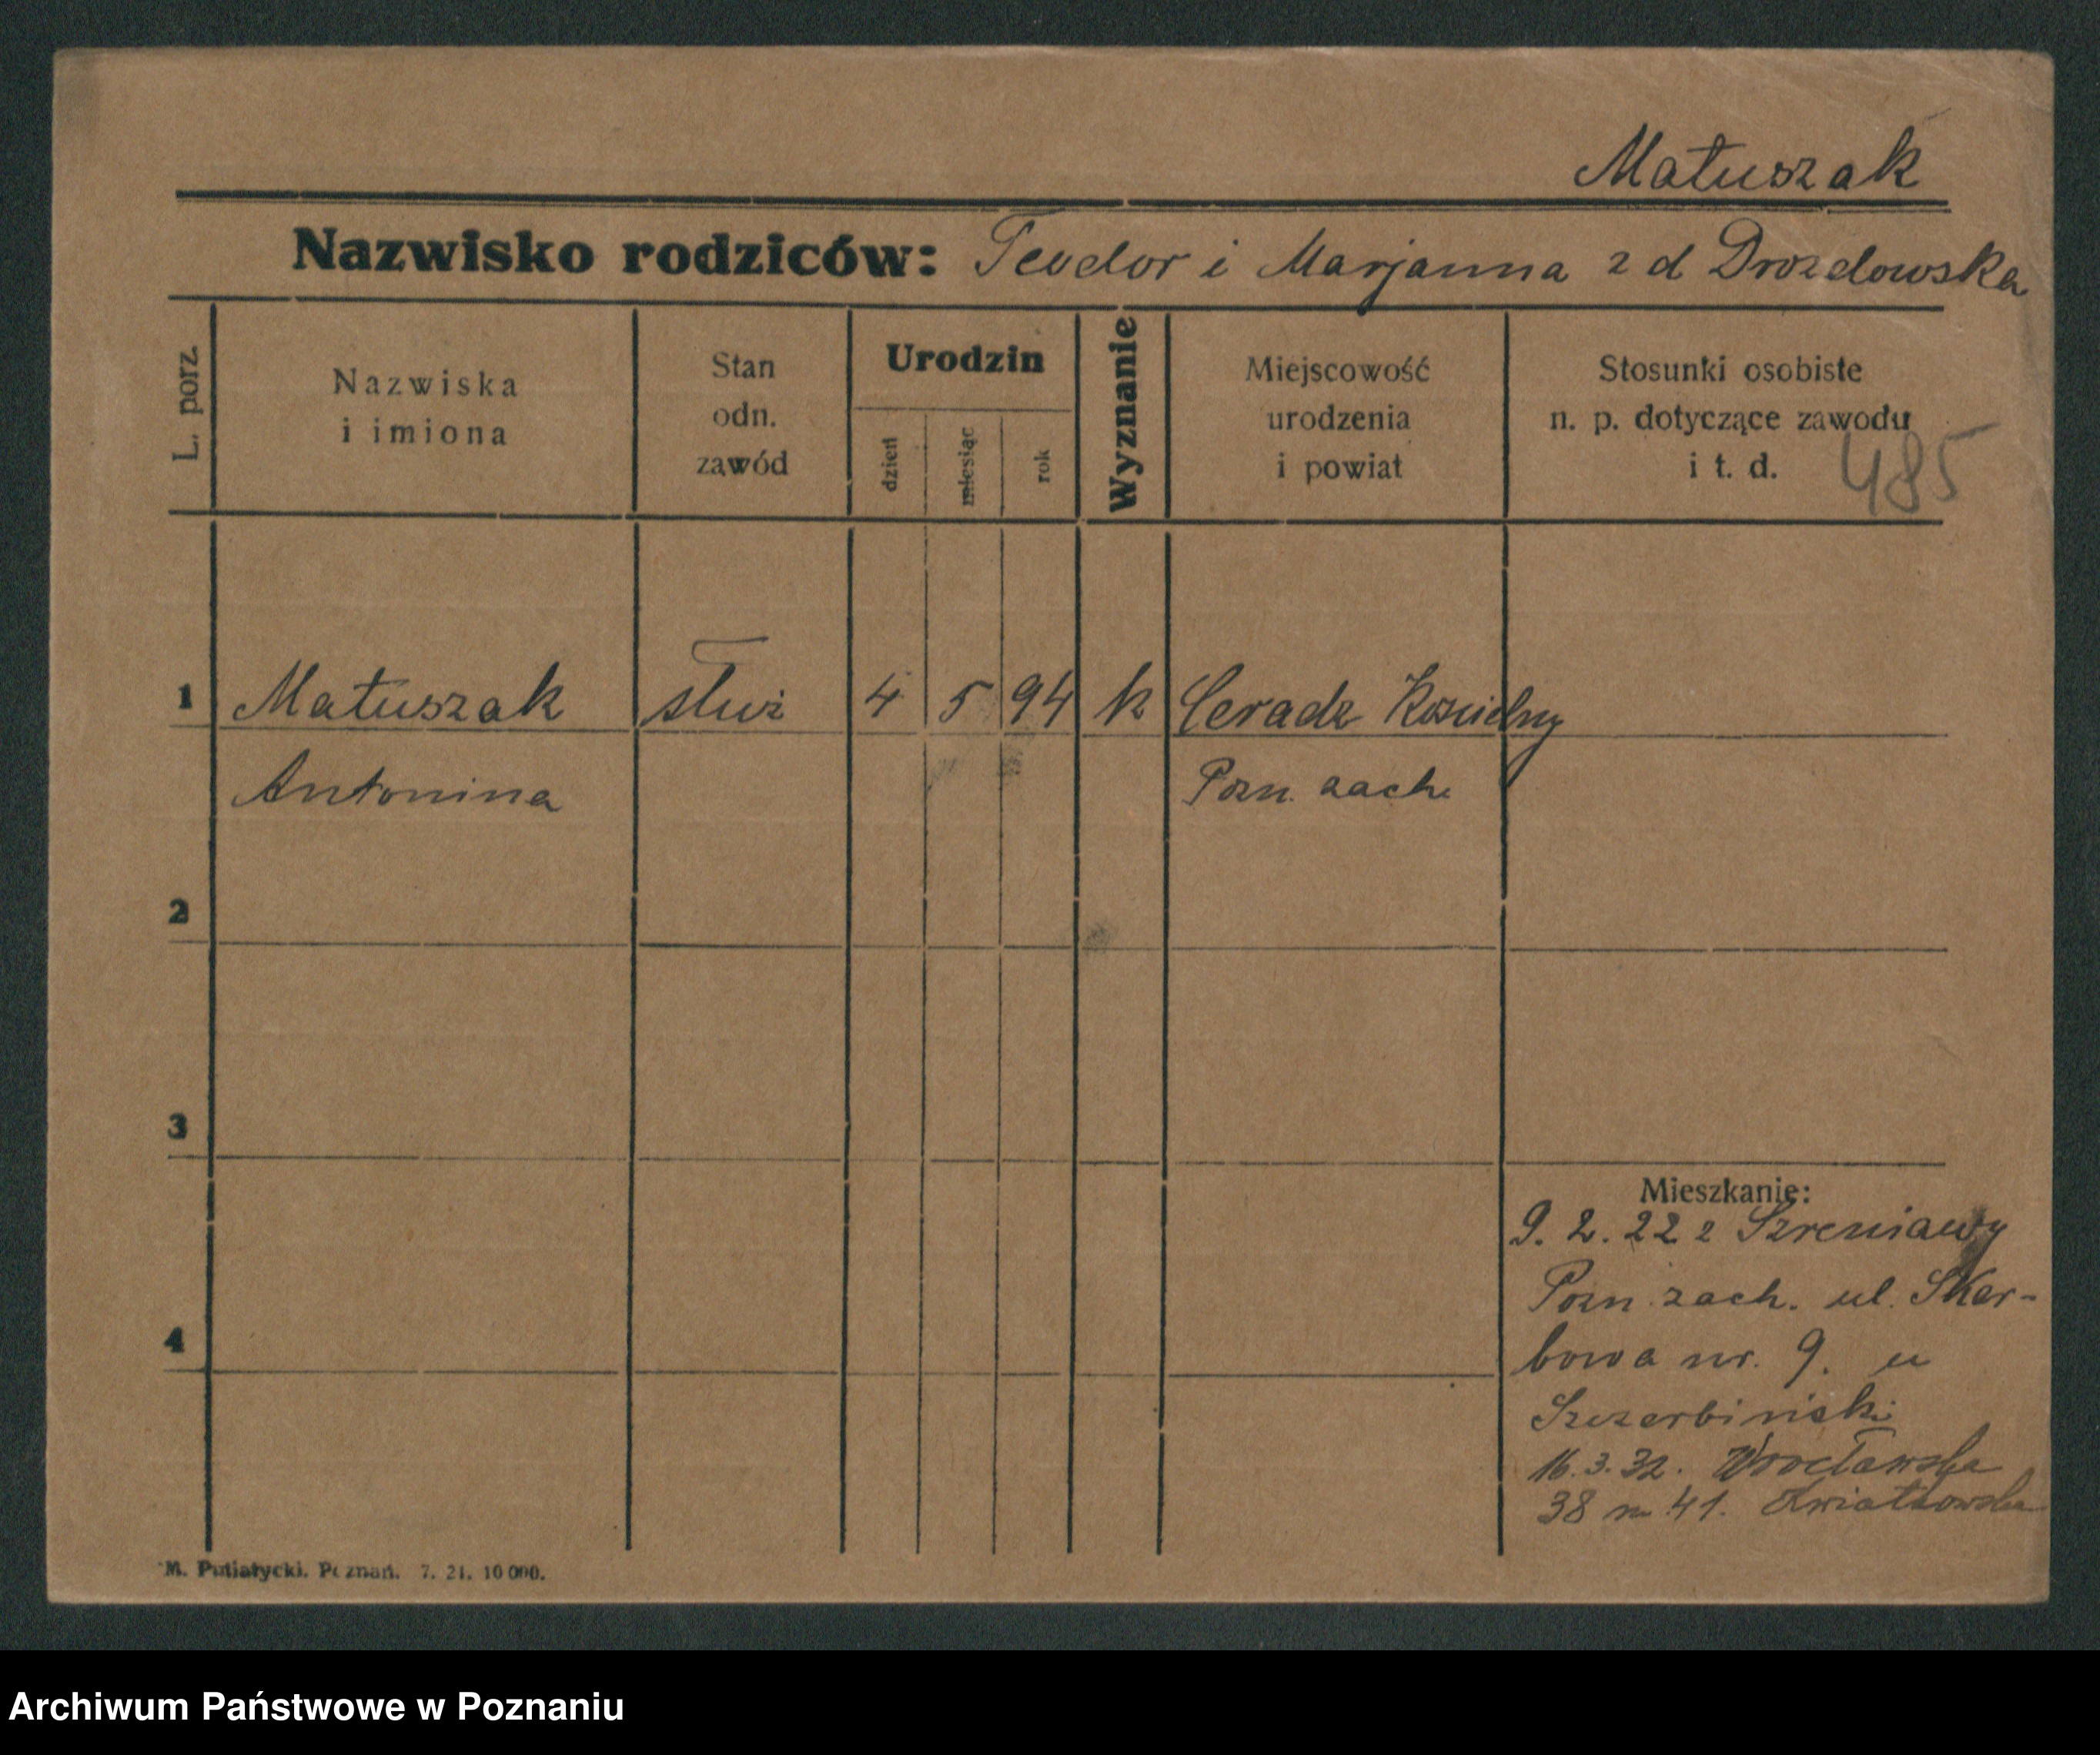 Matuszak
Nazwisko rodziców: Teodor i Marjanna z d Drozdowska
L. porz.
Nazwiska
i imiona
Stan
odn.
zawód
Urodzin
dzień
miesiąc
rok
Wyznanie
Miejscowość
urodzenia
i powiat
Stosunki osobiste
n. p. dotyczące zawodu
i t. d.
485
1 Matuszak służ 4 5 94 k Ceradz Kościelny
Antonina Pozn. zach.
2
3
Mieszkanie:
9. 2. 22 z Szreniawy
Pozn. zach. ul. Skar-
4
bowa nr. 9. u
Szczerbiński
16.3.32. Wrocławska
38 m 41. Kwiatkowska
M. Putiatycki. Poznań. 7. 21. 10 000.
Archiwum Państwowe w Poznaniu